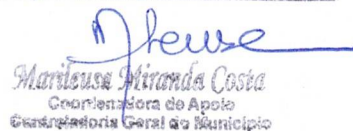 Marileusa Miranda Costa
Coordenadora de Apoio
Controladoria Geral do Município